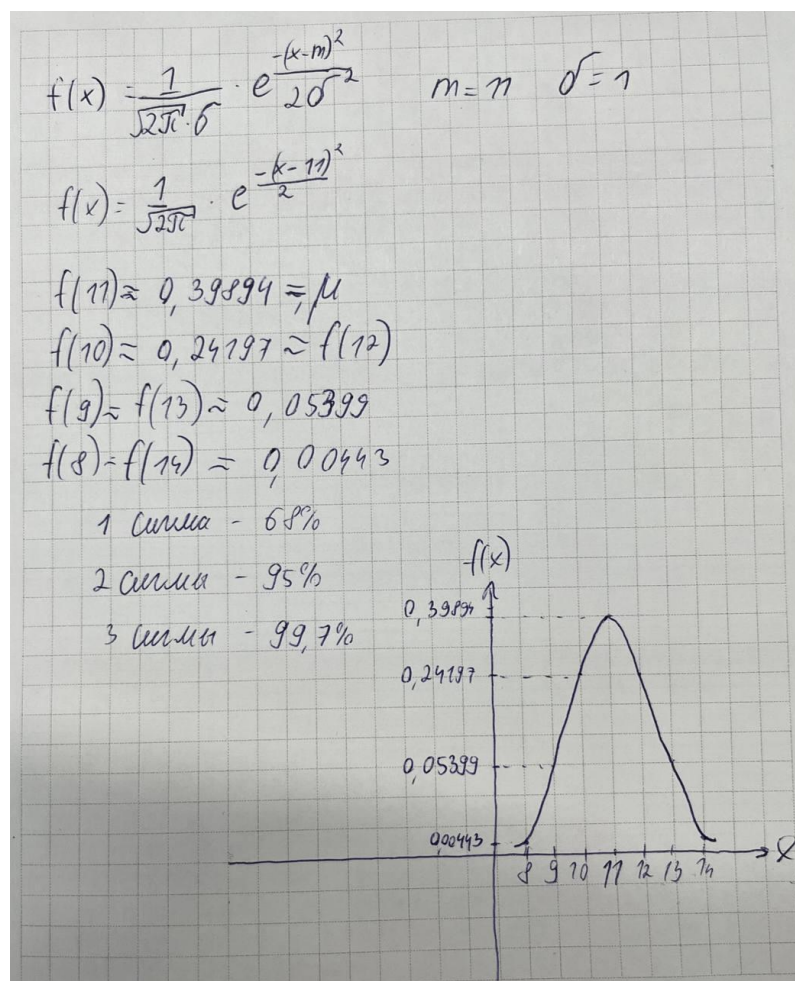 f(x) = 1/(√2π · σ) · e^(-(x-m)²/2σ²) m = 11 σ = 1
f(x) = 1/√2π · e^(-(x-11)²/2)
f(11) ≈ 0,39894 = μ
f(10) ≈ 0,24197 ≈ f(12)
f(9) ≈ f(13) ≈ 0,05399
f(8) = f(14) ≈ 0,00443
1 сигма - 68%
2 сигмы - 95%
3 сигмы - 99,7%
f(x)
0,39894
0,24197
0,05399
0,00443
8 9 10 11 12 13 14 x